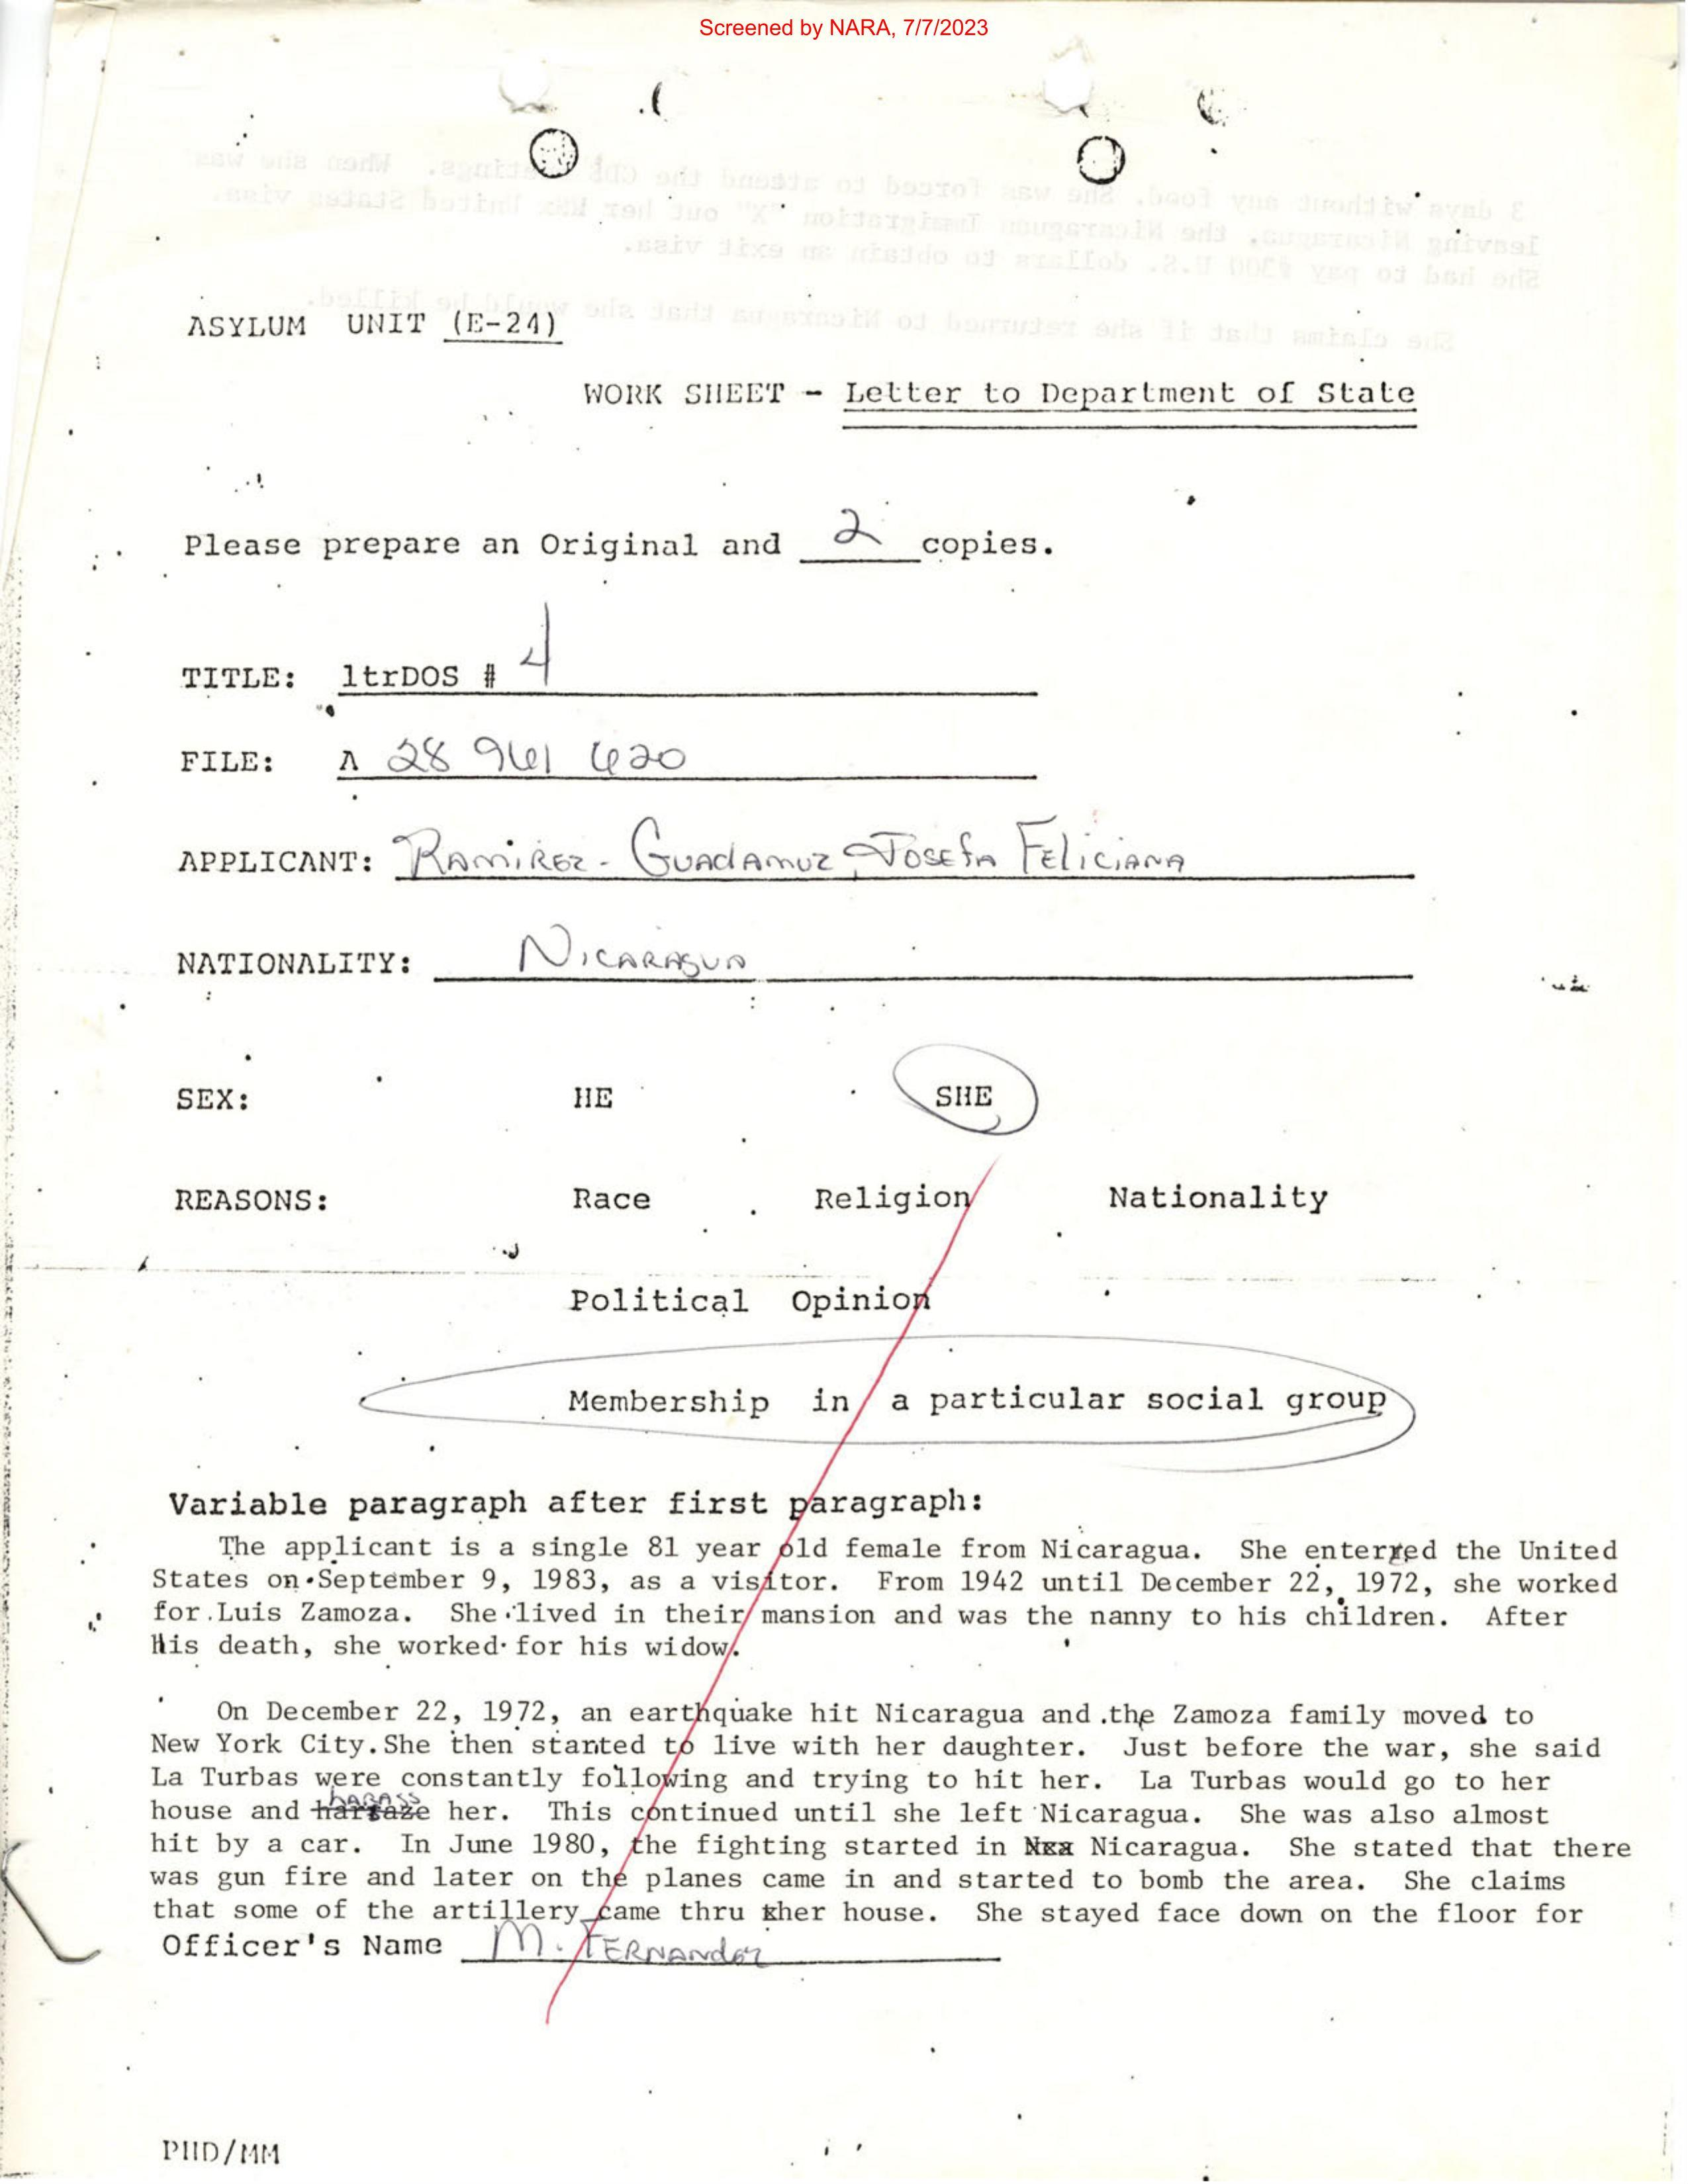 Screened by NARA, 7/7/2023
ASYLUM UNIT (E-24)
WORK SHEET - Letter to Department of State
Please prepare an Original and 2 copies.
TITLE: ltrDOS # 4
FILE: A 28 961 620
APPLICANT: RAMIREZ - GUADAMUZ, JOSEFA FELICIANA
NATIONALITY: NICARAGUA
SEX: HE SHE
REASONS: Race Religion Nationality
Political Opinion
Membership in a particular social group
Variable paragraph after first paragraph:
The applicant is a single 81 year old female from Nicaragua. She enterred the United
States on September 9, 1983, as a visitor. From 1942 until December 22, 1972, she worked
for Luis Zamoza. She lived in their mansion and was the nanny to his children. After
his death, she worked for his widow.
On December 22, 1972, an earthquake hit Nicaragua and the Zamoza family moved to
New York City. She then started to live with her daughter. Just before the war, she said
La Turbas were constantly following and trying to hit her. La Turbas would go to her
house and harass her. This continued until she left Nicaragua. She was also almost
hit by a car. In June 1980, the fighting started in Nicaragua. She stated that there
was gun fire and later on the planes came in and started to bomb the area. She claims
that some of the artillery came thru her house. She stayed face down on the floor for
Officer's Name M. FERNANDEZ
PHD/MM